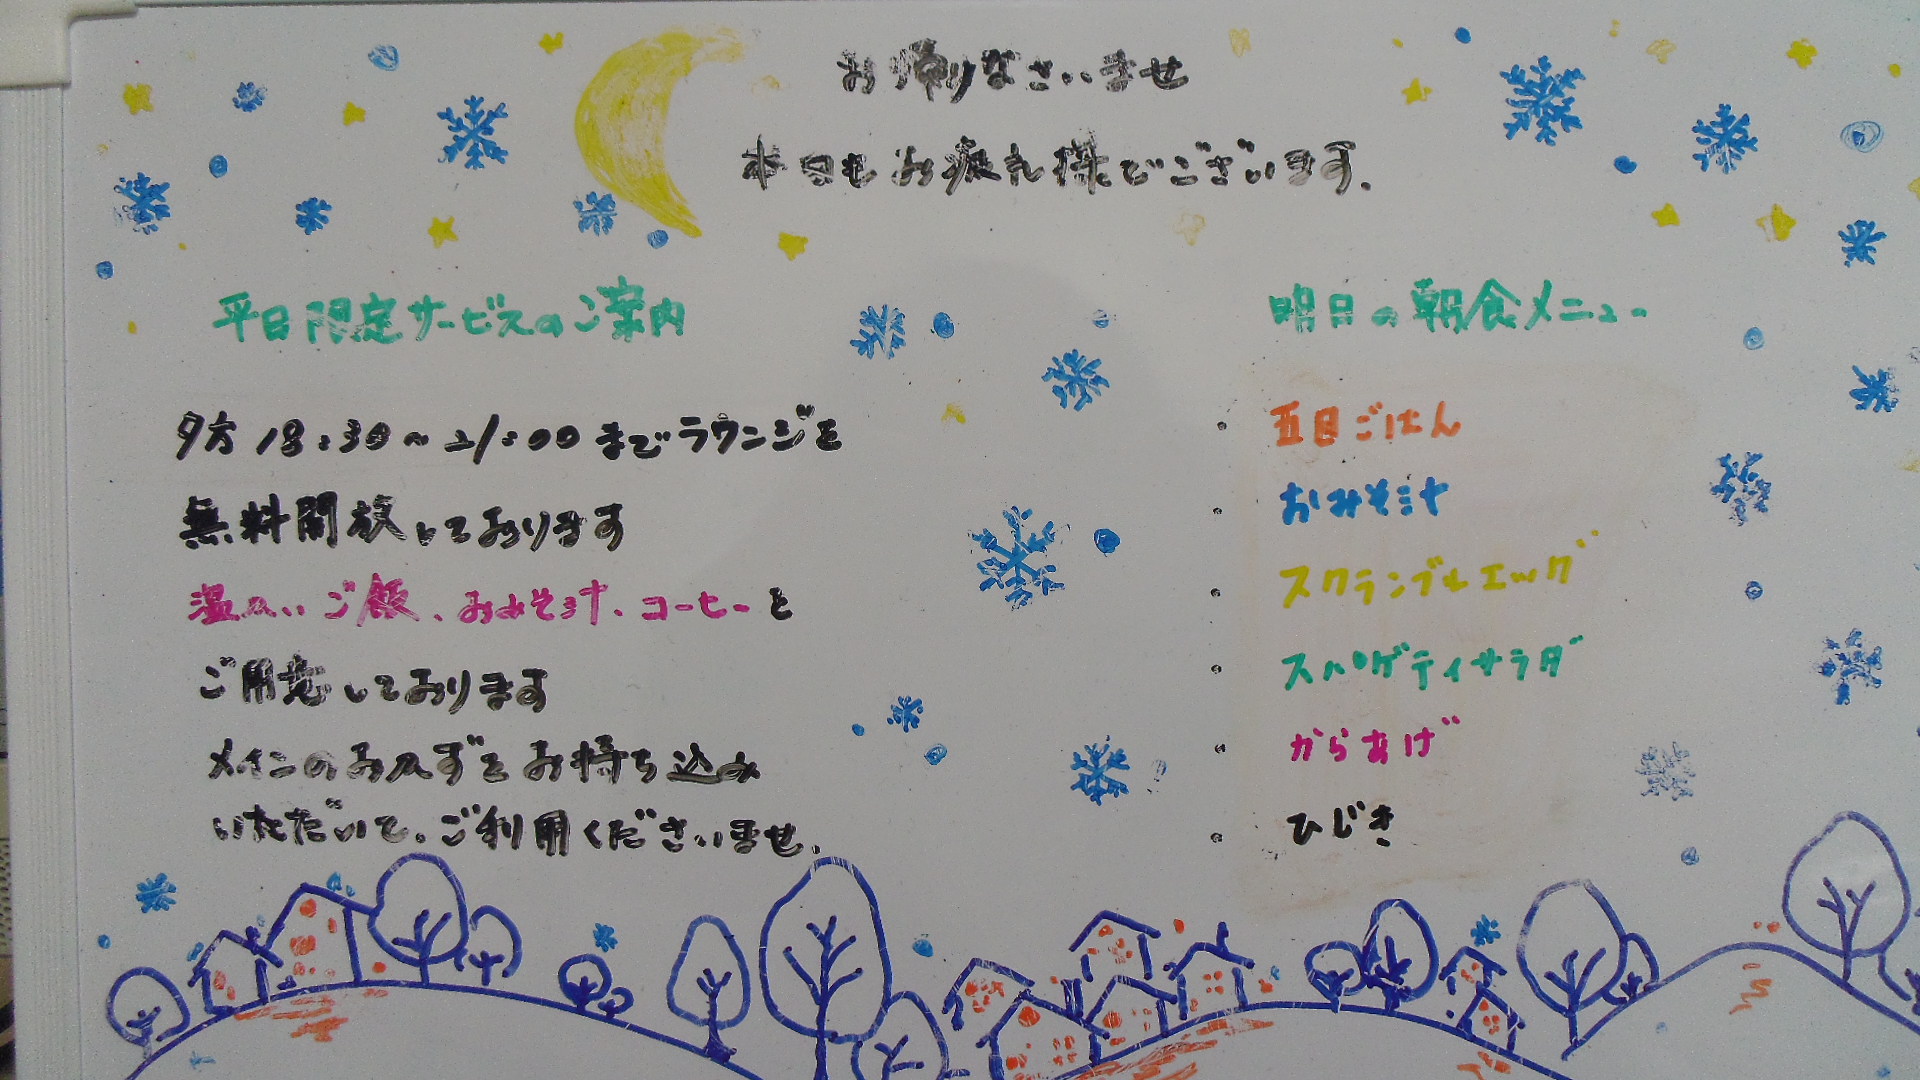 お帰りなさいませ
本日もお疲れ様でございます.
平日限定サービスのご案内
夕方 18:30～21:00 までラウンジを
無料開放しております
温かいご飯、おみそ汁、コーヒーを
ご用意しております
メインのおかずをお持ち込み
いただいて、ご利用くださいませ.
明日の朝食メニュー
・ 五目ごはん
・ おみそ汁
・ スクランブルエッグ
・ スパゲティサラダ
・ からあげ
・ ひじき